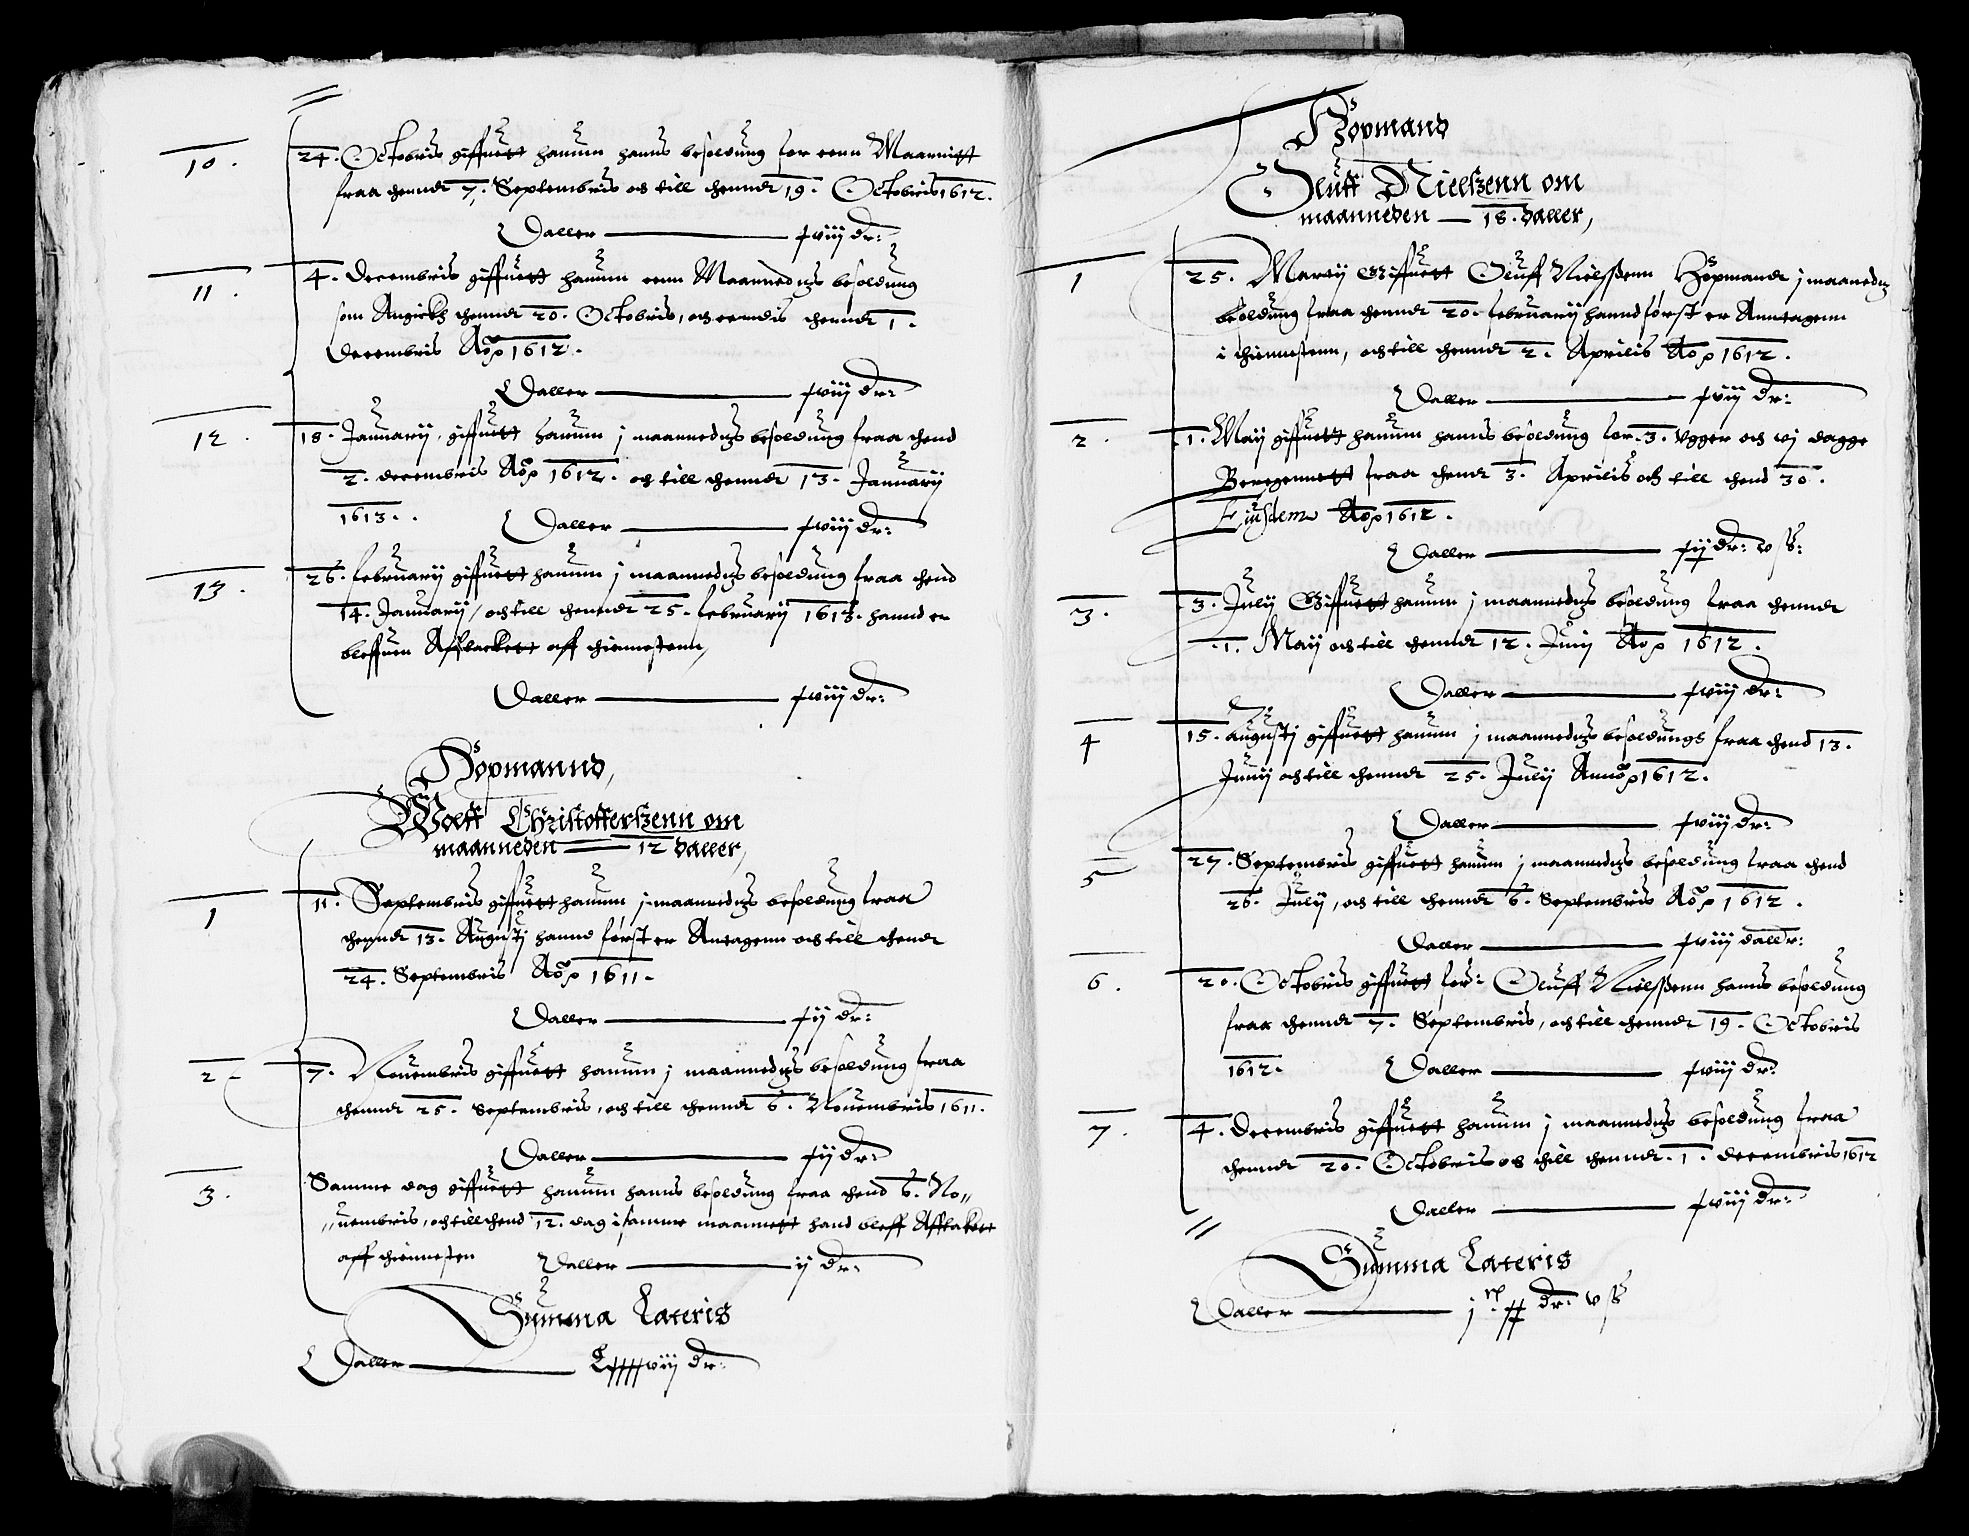 10. 24. Octobris giffuett hanum hanns besoldung for eenn Maanitt
fraa thennd 7. Septembris och till thennd 19. Octobris 1612.
Daller — xviij dr:
11. 4. Decembris giffuett hanum eenn Maannedtz besoldung
som Angick thennd 20. Octobris, och eendis thennd 1.
Decembris Aoo 1612.
Daller — xviij dr:
12. 18. Januarij, giffuett hanum j maannedtz besoldung fraa thend
2. decembris Aoo 1612. och till thennd 13. Januarij
1613. Daller — xviij dr:
13. 26. februarij giffuett hanum j maannedtz besoldung fraa thend
14. Januarij, och till thennd 25. februarij 1613. hannd er
bleffuen Afftackett aff thiennestenn,
Daller — xviij dr:
Höpmannd,
Wolff Christofferszenn om
maanneden — 12 daller,
1 11. Septembris giffuett hanum j maannedtz besoldung fraa
thennd 13. Augustj hannd først er Antagenn och till thend
24. Septembris Aoo 1611.
Daller — xij dr:
2 7. Nouembris giffuett hanum j maannedtz besoldung fraa
thennd 25. Septembris, och till thennd 6. Nouembris 1611.
Daller — xij dr:
3. Samme dag giffuett hanum hanns besoldung fraa thend 6. No„
„uembris, och till thend 12. dag i samme maannett hand bleff Afftakett
aff thiennesten Daller — ij dr:
Summa Lateris
Daller — Lxxxxviij dr:
Höpmand
Oluff Nielszenn om
maanneden — 18. daller,
1 25. Martij Giffuett Oluff Nielssenn Höpmand j maannedtz
besoldung fraa thennd 20. februarij hannd først er Anntagenn
i thiennestenn, och till thennd 2. Aprilis Aoo 1612.
Daller — xviij dr:
2. 1. Maij giffuett hanum hanns besoldung for 3. vgger och vj dagge
Beregennett fraa thend 3. Aprilis och till thend 30.
Eiusdem Aoo 1612.
Daller — xij dr: v ß:
3. 3. Julij Giffuett hanum j maannedtz besoldung fraa thennd
1. Maij och till thennd 12. Junij Aoo 1612.
Daller — xviij dr:
4 15. Augustj giffuett hanum j maannedtz besoldungs fraa thend 13.
Junij och till thennd 25. Julij Annoo 1612.
Daller — xviij dr:
5 27. Septembris giffuett hanum j maannedtz besoldung fraa thend
26. Julij, och till thennd 6. Septembris Aoo 1612.
Daller — xviij dallr:
6. 20. Octobris giffuett for: Oluff Nielssenn hanns besoldung
fraa thennd 7. Septembris, och till thennd 19. Octobris
1612. Daller — xviij dr:
7. 4. Decembris giffuett hanum j maannedtz besoldung fraa
thennd 20. Octobris och thill thennd 1. decembris 1612
Daller — xviij dr:
Summa Lateris
Daller — j c xx dr: v ß